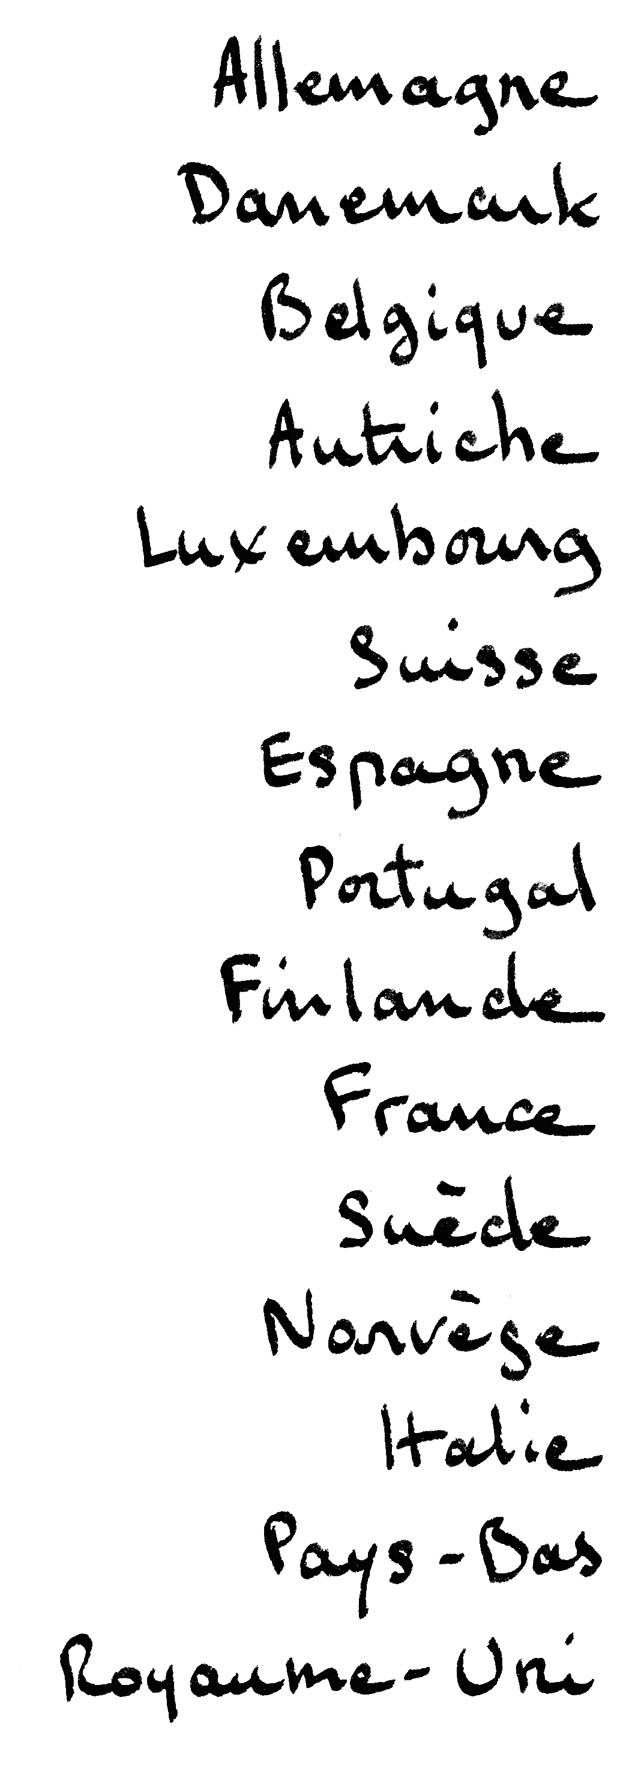 Allemagne
Danemark
Belgique
Autriche
Luxembourg
Suisse
Espagne
Portugal
Finlande
France
Suède
Norvège
Italie
Pays-Bas
Royaume-Uni